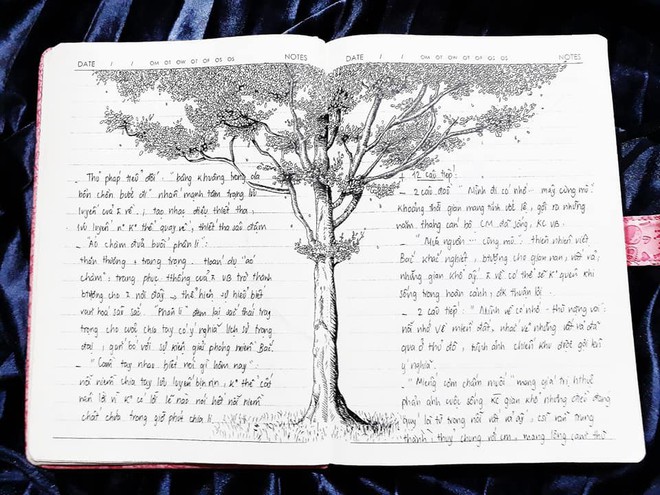 DATE / / OM OT OW OT OF OS OS NOTES
- Thủ pháp tiểu đối: "bâng khuâng trong dạ
bồn chồn bước đi" nhấn mạnh tâm trạng lưu
luyến của 2 về, tạo nhạc điệu thiết tha,
lưu luyến n° k° thể quay về, thiết tha sâu đậm
- "Áo chàm đưa buổi phân li":
thân thương + trang trọng. Hoán dụ "áo
chàm": trang phục tthống của 2 VB trở thành
btượng cho 2 nơi đây → thể hiện sự hiểu biết
văn hoá sâu sắc. "Phân li" đem lại sắc thái trang
trọng cho cuộc chia tay có ý nghĩa lịch sử trọng
đại, gắn bó với sự kiện giải phóng miền Bắc.
- "Cầm tay nhau biết nói gì hôm nay":
nỗi niềm chia tay lưu luyến bịn rịn, k° thể cất
nên lời vì k° có lời lẽ nào nói hết nỗi niềm
chất chứa trong giờ phút chia li
DATE / / OM OT OW OT OF OS OS NOTES
+ 12 câu tiếp:
- 2 câu đầu "Mình đi có nhớ - mây cùng mù":
khoảng thời gian mang tính ước lệ, gợi ra những
năm tháng cán bộ CM đã sống, KC VB.
- "Mưa nguồn ... cùng mù": thiên nhiên Việt
Bắc khắc nghiệt, btượng cho gian nan, vất vả;
những gian khổ ấy 2 về có thể sẽ k° quên khi
sống trong hoàn cảnh, đk thuận lợi.
- 2 câu tiếp: "Mình về có nhớ - thù nặng vai":
nỗi nhớ về miền đất, nhắc về những vất vả đã
qua ở thủ đô, hình ảnh chiến khu được gợi khi
ý nghĩa.
- "Miếng cơm chấm muối" mang giá trị hthực
phản ánh cuộc sống KC gian khổ nhưng điều đáng
quý lại từ trong nỗi vất vả ấy, con người trung
thành, thuỷ chung với CM, mang lòng căm thù